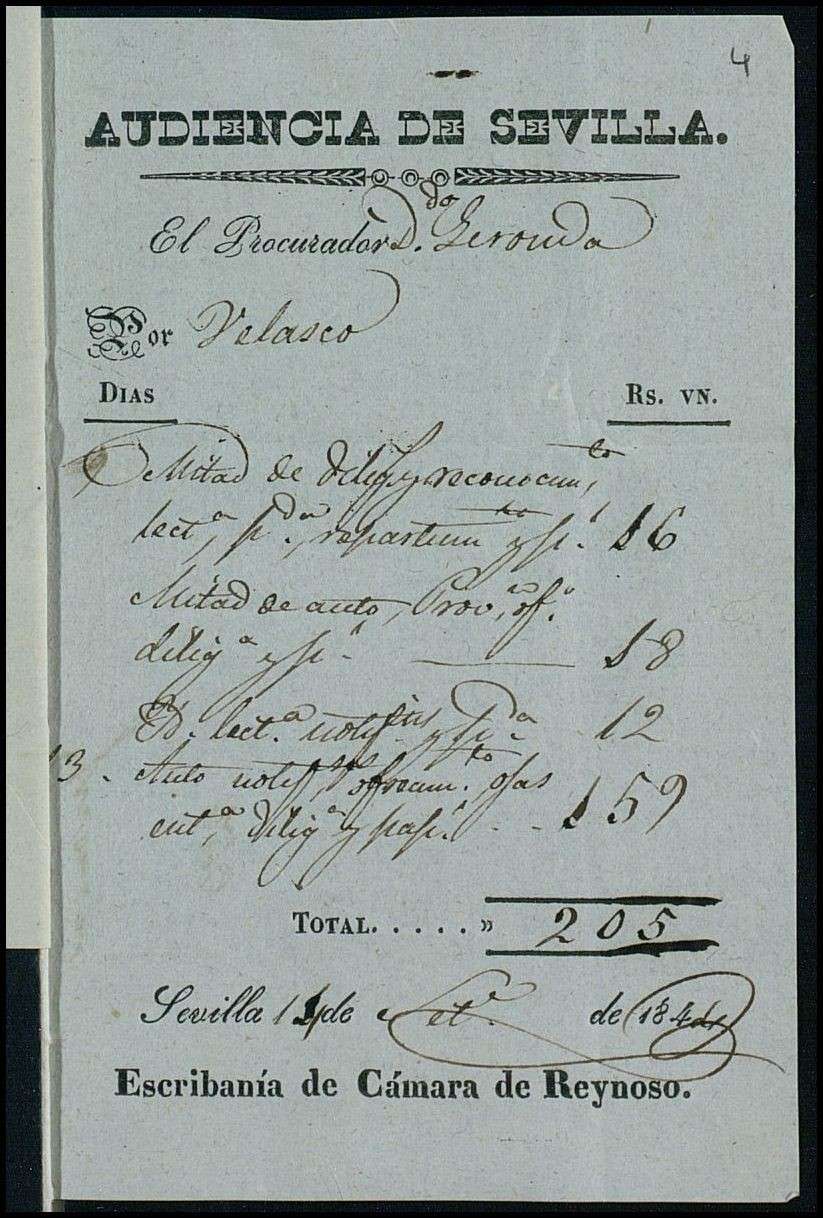 4
AUDIENCIA DE SEVILLA.
El Procurador D.
Por Velasco
DIAS Rs. VN.
Mitad de dilig.s y reconocim.to
lect.a, p.da, repartim.to y p.l 16
Mitad de auto, Prov.on, of.o
dilig.a y p.l 18
Id. lect.a notif.on y p.da 12
13. Auto notif.on ofrecim.to
ent.a, dilig.a y pap.l 159
TOTAL. . . . . » 205
Sevilla 14 de Set.e de 184
Escribanía de Cámara de Reynoso.